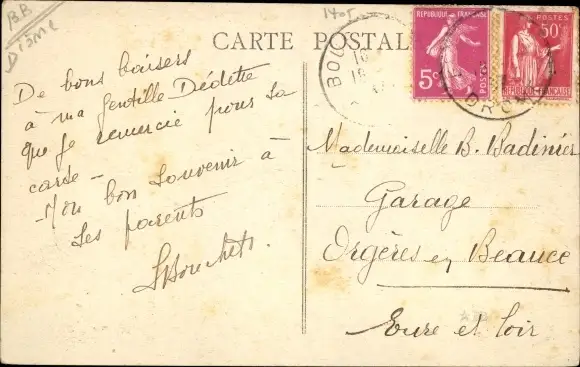 BB
Drôme
1405
CARTE POSTALE
REPUBLIQUE FRANÇAISE
5c
POSTES
POSTES
50c
REPUBLIQUE FRANÇAISE
BO
DRO
De bons baisers
à ma gentille Dédette
que je remercie pour sa
carte -
Mon bon souvenir à
ses parents
Mademoiselle B. Badinier
Garage
Orgères en Beauce
Eure et Loir